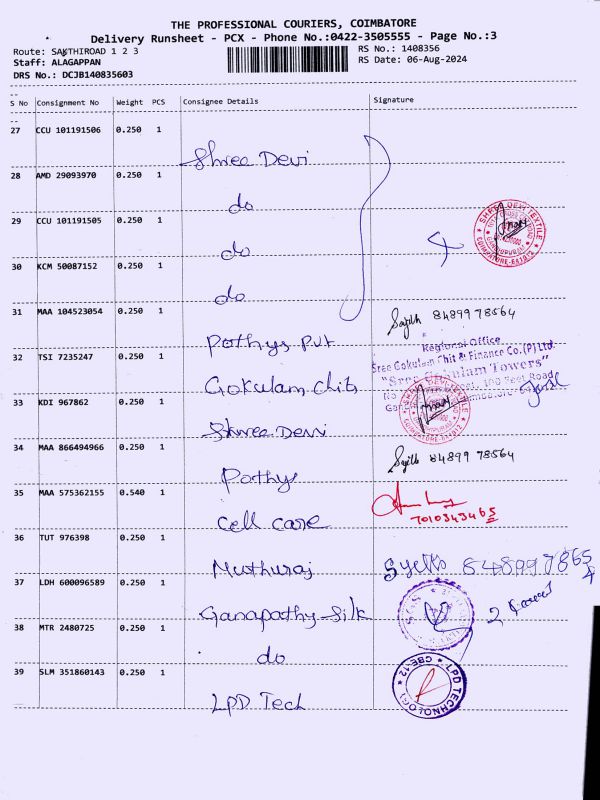 THE PROFESSIONAL COURIERS, COIMBATORE
Delivery Runsheet - PCX - Phone No.:0422-3505555 - Page No.:3
Route: SAKTHIROAD 1 2 3
RS No.: 1408356
Staff: ALAGAPPAN
RS Date: 06-Aug-2024
DRS No.: DCJB140835603
S No Consignment No Weight PCS Consignee Details Signature
27 CCU 101191506 0.250 1
Shree Devi
28 AMD 29093970 0.250 1
do
29 CCU 101191505 0.250 1
do
4
SHREE DEVI TEXTILE
COIMBATORE-641012
30 KCM 50087152 0.250 1
do
31 MAA 104523054 0.250 1
Pothys Pvt
84899 78564
32 TSI 7235247 0.250 1
Gokulam Chits
Regional Office
Sree Gokulam Chit & Finance Co.(P) Ltd.
"Sree Gokulam Towers"
100 Feet Road
33 KDI 967862 0.250 1
Shree Devi
SHREE DEVI TEXTILE
COIMBATORE-641012
34 MAA 866494966 0.250 1
Pothys
84899 78564
35 MAA 575362155 0.540 1
Cell care
7010343465
36 TUT 976398 0.250 1
Muthuraj
37 LDH 600096589 0.250 1
Ganapathy Silk
2
38 MTR 2480725 0.250 1
do
39 SLM 351860143 0.250 1
LPD Tech
LPD TECHNOLOGY
CBE-12